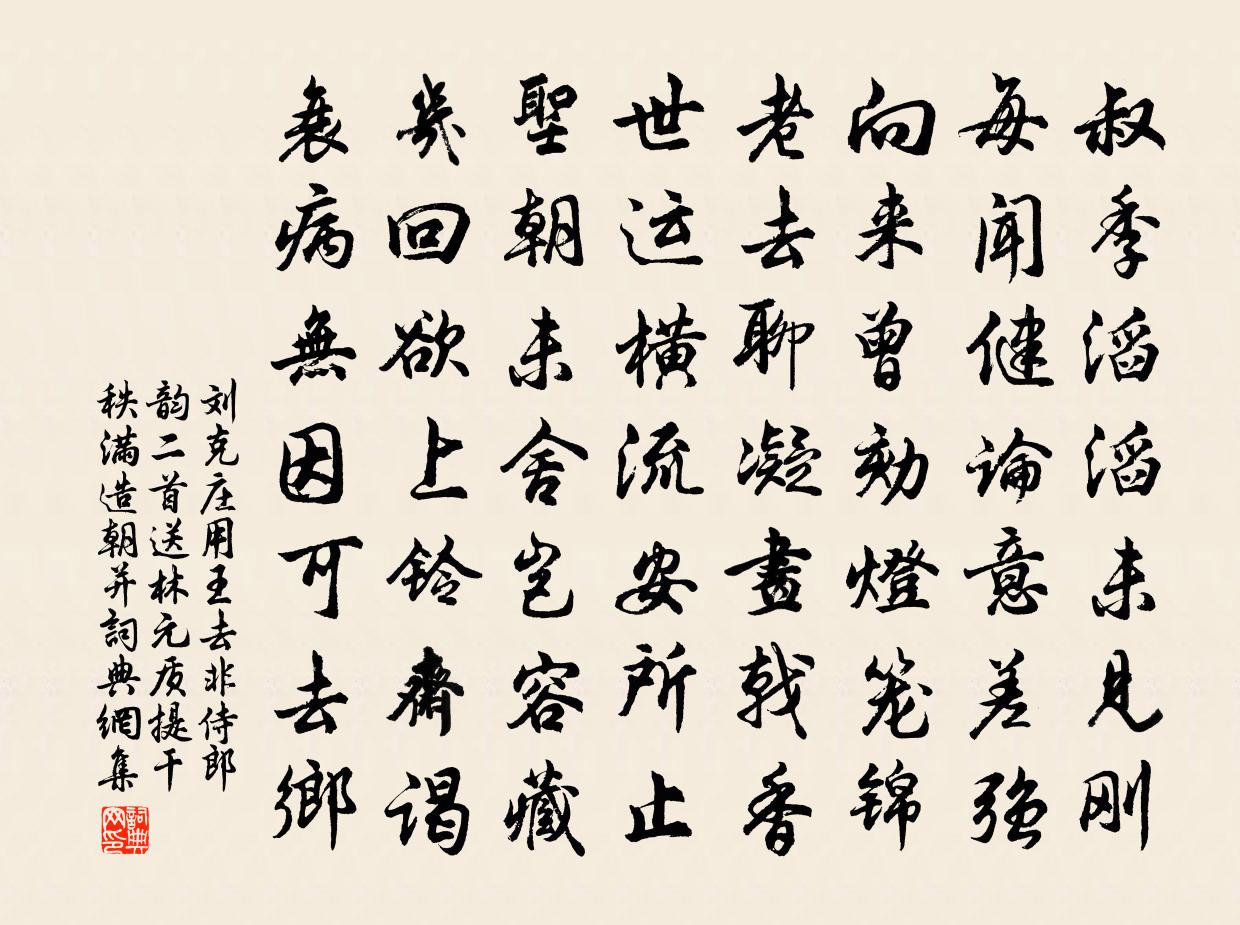 叔季滔滔未见刚
每闻健论意差强
向来曾劾燈笼锦
老去聊凝畫戟香
世运横流安所止
聖朝未舍岂容藏
幾回欲上铃齋谒
衰病無因可去鄉
刘克庄用王去非侍郎
韵二首送林元质提干
秩满造朝并詞典網集
詞典
网印